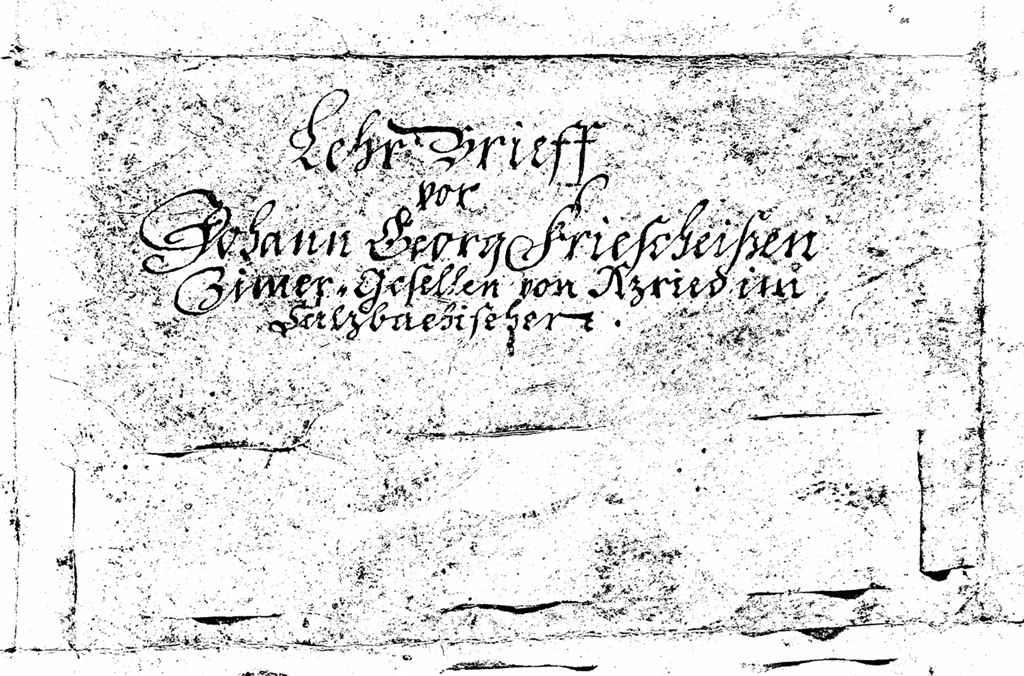 Lehr Brieff
vor
Johann Georg Friescheißen
Zimer-Gesellen von Azried im
Sulzbachischen